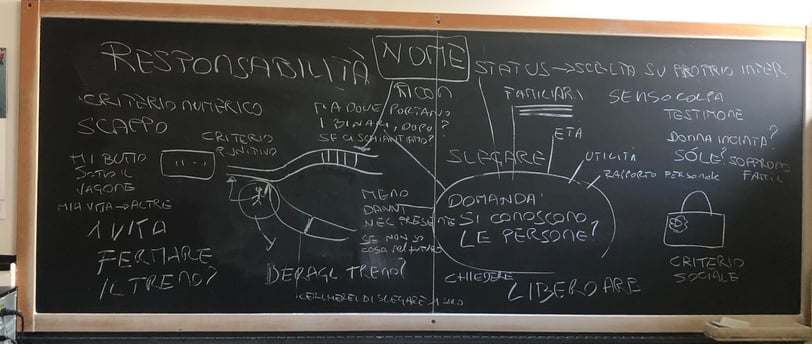 RESPONSABILITÀ
NOME
STATUS → SCELTA SU PROPRIO INTER
CRITERIO NUMERICO
SCAPPO
CRITERIO
MI BUTTO
SOTTO IL
VAGONE
MIA VITA → ALTRE
1 VITA
FERMARE
IL TRENO?
MA DOVE PORTANO
I BINARI, DOPO?
SE CI SCHIANTIAMO?
FAMILIARI
SENSO COLPA
TESTIMONE
DONNA INCINTA?
SOLE? SOFFRONO
FAMIL
SLEGARE
ETÀ
UTILITÀ
RAPPORTO PERSONALE
MENO
DANNI
NEL PRESENTE
SE NON SO
COSA NEL FUTURO
DOMANDA:
SI CONOSCONO
LE PERSONE?
CHIEDERE
LIBERARE
DERAGL TRENO?
CERCHEREI DI SLEGARE
CRITERIO
SOCIALE